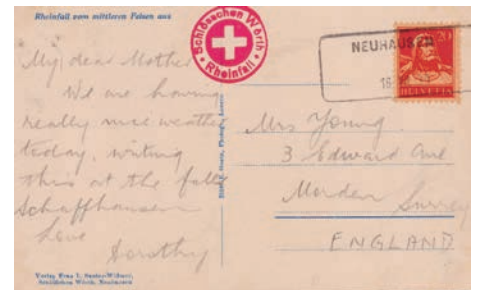 Rheinfall vom mittleren Felsen aus
Schlösschen Wörth
Rheinfall
NEUHAUSEN
20
HELVETIA
My dear Mother
We are having
really nice weather
today, writing
this at the falls
Schaffhausen
Love
Dorothy
Mrs Young
3 Edward Ave
Morden Surrey
ENGLAND
Verlag Frau
Schlösschen Wörth, Neuhausen